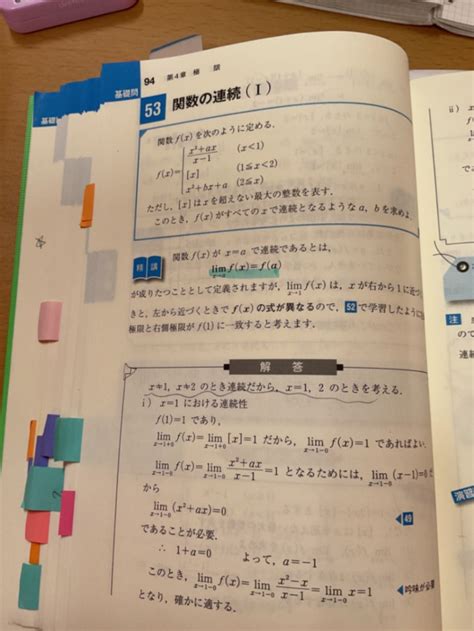 94 第4章 極 限
基礎問
53 関数の連続(Ⅰ)
関数 f(x) を次のように定める.
f(x)={ (x²+ax)/(x-1) (x<1)
[x] (1≦x<2)
x²+bx+a (2≦x)
ただし, [x] は x を超えない最大の整数を表す.
このとき, f(x) がすべての x で連続となるような a, b を求めよ.
精講
関数 f(x) が x=a で連続であるとは,
lim[x→a] f(x)=f(a)
が成りたつこととして定義されますが, lim[x→1] f(x) は, x が右から1に近づ
きと, 左から近づくときで f(x) の式が異なるので, 52 で学習したように
極限と右側極限が f(1) に一致すると考えます.
解 答
x≠1, x≠2 のとき連続だから, x=1, 2 のときを考える.
ⅰ) x=1 における連続性
f(1)=1 であり,
lim[x→1+0] f(x)=lim[x→1+0] [x]=1 だから, lim[x→1-0] f(x)=1 であればよい.
lim[x→1-0] f(x)=lim[x→1-0] (x²+ax)/(x-1)=1 となるためには, lim[x→1-0] (x-1)=0
から
lim[x→1-0] (x²+ax)=0
49
であることが必要.
∴ 1+a=0 よって, a=-1
このとき, lim[x→1-0] f(x)=lim[x→1-0] (x²-x)/(x-1)=lim[x→1-0] x=1
吟味が必要
となり, 確かに適する.
ⅱ)
注
連続
演習